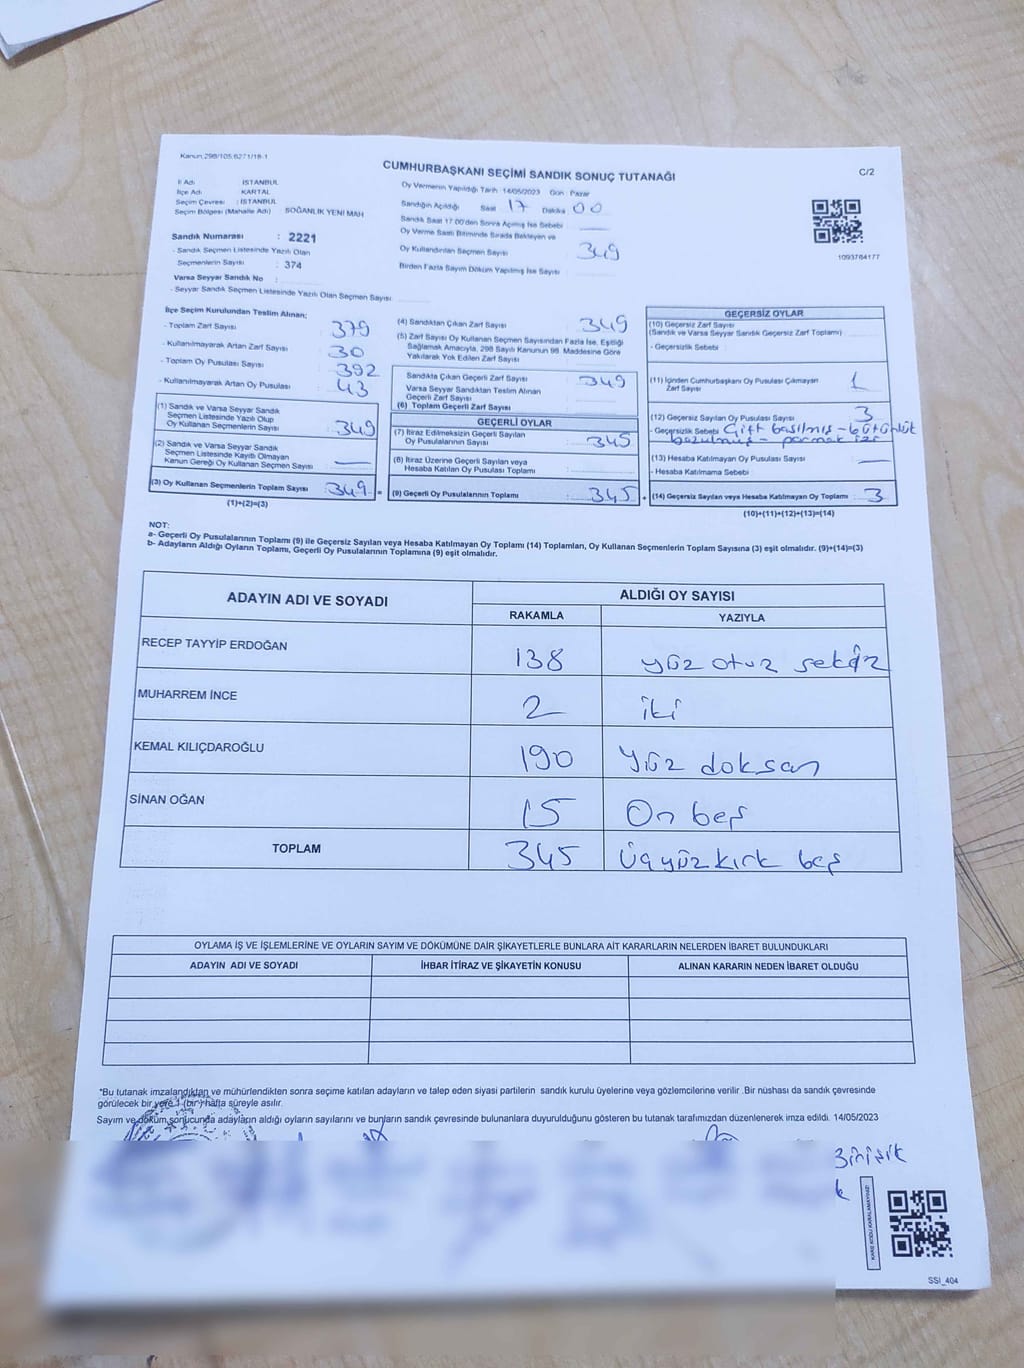 Kanun:298/105,6271/18-1
CUMHURBAŞKANI SEÇİMİ SANDIK SONUÇ TUTANAĞI
C/2
İl Adı : İSTANBUL
İlçe Adı : KARTAL
Seçim Çevresi : İSTANBUL
Seçim Bölgesi (Mahalle Adı) : SOĞANLIK YENİ MAH
Sandık Numarası : 2221
- Sandık Seçmen Listesinde Yazılı Olan
Seçmenlerin Sayısı : 374
Varsa Seyyar Sandık No :
- Seyyar Sandık Seçmen Listesinde Yazılı Olan Seçmen Sayısı
Oy Vermenin Yapıldığı Tarih :14/05/2023 Gün : Pazar
Sandığın Açıldığı Saat 17 Dakika 00
Sandık Saat 17.00'den Sonra Açılmış İse Sebebi
Oy Verme Saati Bitiminde Sırada Bekleyen ve
Oy Kullandırılan Seçmen Sayısı 349
Birden Fazla Sayım Döküm Yapılmış İse Sayısı
1093764177
İlçe Seçim Kurulundan Teslim Alınan;
- Toplam Zarf Sayısı 379
- Kullanılmayarak Artan Zarf Sayısı 30
- Toplam Oy Pusulası Sayısı 392
- Kullanılmayarak Artan Oy Pusulası 43
(1) Sandık ve Varsa Seyyar Sandık
Seçmen Listesinde Yazılı Olup
Oy Kullanan Seçmenlerin Sayısı 349
(2) Sandık ve Varsa Seyyar Sandık
Seçmen Listesinde Kayıtlı Olmayan
Kanun Gereği Oy Kullanan Seçmen Sayısı —
(3) Oy Kullanan Seçmenlerin Toplam Sayısı : 349 =
(1)+(2)=(3)
(4) Sandıktan Çıkan Zarf Sayısı 349
(5) Zarf Sayısı Oy Kullanan Seçmen Sayısından Fazla İse, Eşitliği
Sağlamak Amacıyla, 298 Sayılı Kanunun 98. Maddesine Göre
Yakılarak Yok Edilen Zarf Sayısı
Sandıkta Çıkan Geçerli Zarf Sayısı : 349
Varsa Seyyar Sandıktan Teslim Alınan
Geçerli Zarf Sayısı
(6) Toplam Geçerli Zarf Sayısı
GEÇERLİ OYLAR
(7) İtiraz Edilmeksizin Geçerli Sayılan
Oy Pusulasının Sayısı : 345
(8) İtiraz Üzerine Geçerli Sayılan veya
Hesaba Katılan Oy Pusulası Toplamı
(9) Geçerli Oy Pusulalarının Toplamı : 345 +
GEÇERSİZ OYLAR
(10) Geçersiz Zarf Sayısı
(Sandık ve Varsa Seyyar Sandık Geçersiz Zarf Toplamı)
- Geçersizlik Sebebi :
(11) İçinden Cumhurbaşkanı Oy Pusulası Çıkmayan
Zarf Sayısı 1
(12) Geçersiz Sayılan Oy Pusulası Sayısı 3
- Geçersizlik Sebebi Çift basılmış - bütünlük
bozulmuş - parmak izi
(13) Hesaba Katılmayan Oy Pusulası Sayısı —
- Hesaba Katılmama Sebebi :
(14) Geçersiz Sayılan veya Hesaba Katılmayan Oy Toplamı : 3
(10)+(11)+(12)+(13)=(14)
NOT:
a- Geçerli Oy Pusulalarının Toplamı (9) ile Geçersiz Sayılan veya Hesaba Katılmayan Oy Toplamı (14) Toplamları, Oy Kullanan Seçmenlerin Toplam Sayısına (3) eşit olmalıdır. (9)+(14)=(3)
b- Adayların Aldığı Oyların Toplamı, Geçerli Oy Pusulalarının Toplamına (9) eşit olmalıdır.
ADAYIN ADI VE SOYADI
ALDIĞI OY SAYISI
RAKAMLA YAZIYLA
RECEP TAYYİP ERDOĞAN 138 yüz otuz sekiz
MUHARREM İNCE 2 iki
KEMAL KILIÇDAROĞLU 190 Yüz doksan
SİNAN OĞAN 15 On beş
TOPLAM 345 Üçyüzkırk beş
OYLAMA İŞ VE İŞLEMLERİNE VE OYLARIN SAYIM VE DÖKÜMÜNE DAİR ŞİKAYETLERLE BUNLARA AİT KARARLARIN NELERDEN İBARET BULUNDUKLARI
ADAYIN ADI VE SOYADI İHBAR İTİRAZ VE ŞİKAYETİN KONUSU ALINAN KARARIN NEDEN İBARET OLDUĞU
*Bu tutanak imzalandıktan ve mühürlendikten sonra seçime katılan adayların ve talep eden siyasi partilerin sandık kurulu üyelerine veya gözlemcilerine verilir .Bir nüshası da sandık çevresinde
görülecek bir yere 1 (bir) hafta süreyle asılır.
Sayım ve döküm sonucunda adayların aldığı oyların sayılarını ve bunların sandık çevresinde bulunanlara duyurulduğunu gösteren bu tutanak tarafımızdan düzenlenerek imza edildi. 14/05/2023
KARE KODU KARALAMAYINIZ!
SSI_404